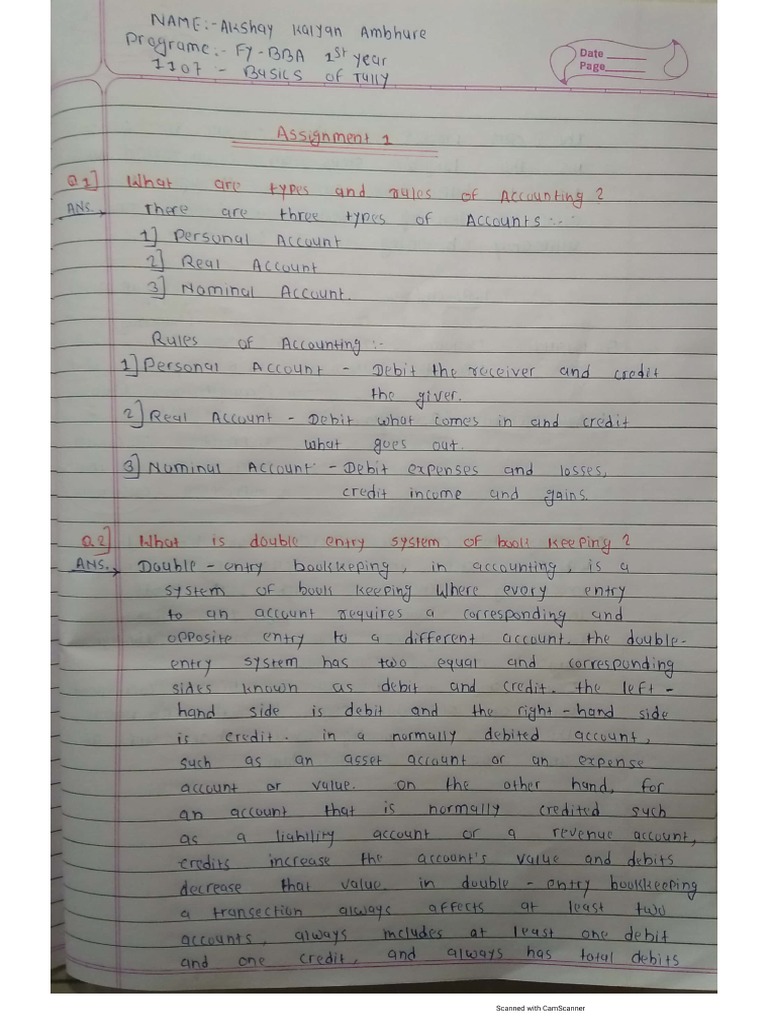 NAME:- Akshay Kalyan Ambhure
Programe:- FY-BBA 1st year
1107 :- Basics of Tally
Date
Page
Assignment 1
Q1] What are types and rules of Accounting ?
ANS. There are three types of Accounts:-
1] Personal Account
2] Real Account
3] Nominal Account.
Rules of Accounting :-
1] Personal Account - Debit the receiver and credit
the giver.
2] Real Account - Debit what comes in and credit
what goes out.
3] Nominal Account - Debit expenses and losses,
credit income and gains.
Q2] What is double entry system of book keeping ?
ANS. Double-entry bookkeeping, in accounting, is a
system of book keeping where every entry
to an account requires a corresponding and
opposite entry to a different account. the double-
entry system has two equal and corresponding
sides known as debit and credit. the left-
hand side is debit and the right-hand side
is credit. in a normally debited account,
such as an asset account or an expense
account or value. on the other hand, for
an account that is normally credited such
as a liability account or a revenue account,
credits increase the account's value and debits
decrease that value. in double-entry bookkeeping
a transection always affects at least two
accounts, always includes at least one debit
and one credit, and always has total debits
Scanned with CamScanner